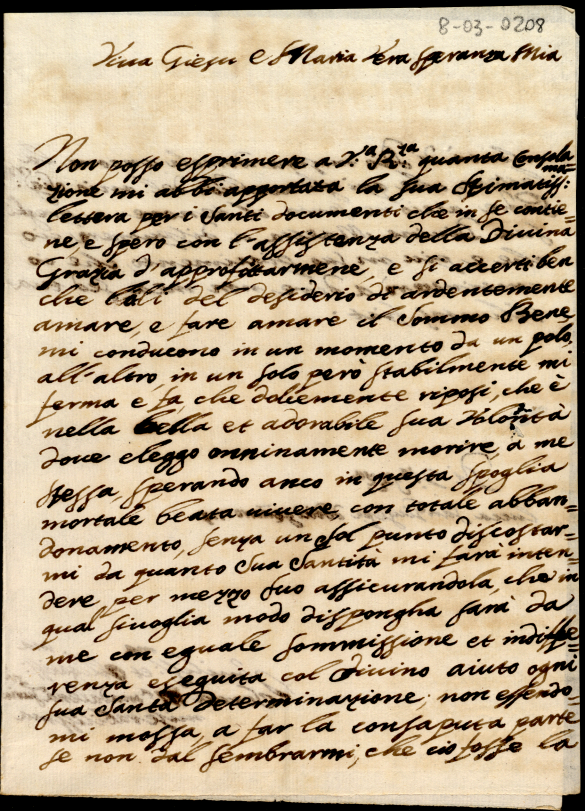 8-03-0208
Viva Giesu e Maria Vera Speranza Mia
Non posso esprimere a V.ª R.za quanta consola=
zione mi abbi apportata la sua Stimatiss:ma
lettera per i Santi documenti che in se contie=
ne e spero con l'assistenza della Divina
Grazia d'approfittarmene, e si accerti ben
che l'ali del desiderio di ardentemente
amare, e fare amare il Sommo Bene
mi conducono in un momento da un polo
all'altro, in un solo però stabilmente mi
ferma e fà che dolcemente riposi, che è
nella bella et adorabile sua Volontà
dove eleggo onninamente morire, à me
stessa, sperando anco in questa spoglia
mortale beata vivere, con totale abban=
donamento, senza un sol punto discostar=
mi da quanto Sua Santità mi farà inten=
dere per mezzo suo assicurandola, che in
qual sivoglia modo dispongha sarà da
me con eguale sommissione et indiffe=
renza eseguita col divino aiuto ogni
sua Santa determinazione; non essendo=
mi mossa, a far la consaputa parte
se non dal sembrarmi, che ciò fosse la